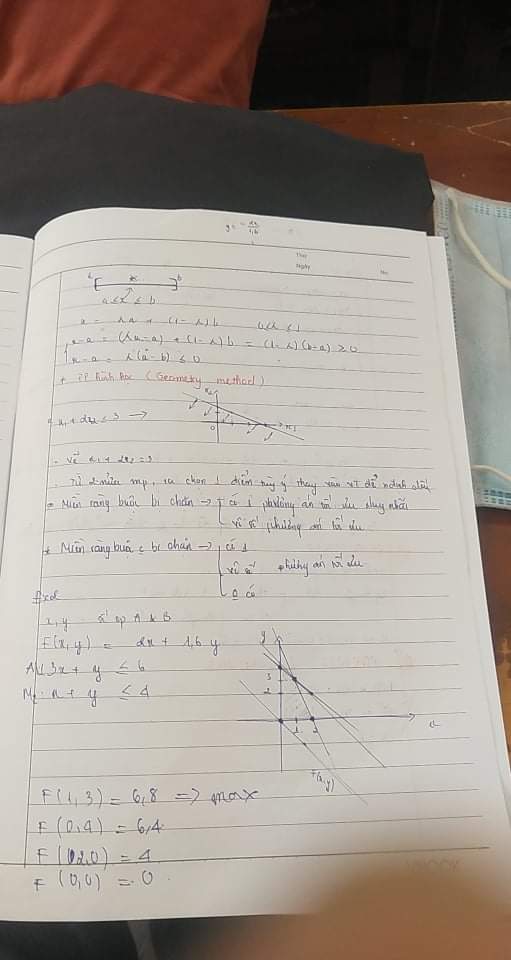 Thứ
Ngày
No.
a b
a ≤ x ≤ b
x = λa + (1-λ)b 0 ≤ λ ≤ 1
x-a = (λa-a) + (1-λ)b = (1-λ)(b-a) ≥ 0
x-a = λ(a-b) ≤ 0
+ PP hình học (Geometry method)
x₁ + 2x₂ ≤ 3 →
x₂
0
x₁
- Vẽ x₁ + 2x₂ = 3
. Từ 2 nửa mp, ta chọn 1 điểm tùy ý thay vào VT để xđịnh dấu
Miền ràng buộc bị chặn → có 1 phương án tối ưu duy nhất
vô số phương án tối ưu
* Miền ràng buộc bị chặn → có 1
vô số phương án tối ưu
có
x, y sp A & B
F(x,y) = 2x + 1,6 y
3x + y ≤ 6
x + y ≤ 4
y
3
2
1 2
F(x,y)
F(1,3) = 6,8 => max
F(0,4) = 6,4
F(2,0) = 4
F(0,0) = 0